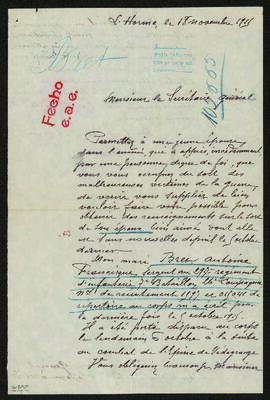 L'Horme, le 18 novembre 1915
Monsieur le Secrétaire général
Fecho
e.a.e.
Permettez à une jeune épouse
dans l'ennui, qui a appris, incidemment
par une personne digne de foi, que
vous vous occupiez du sort des
malheureuses victimes de la guerre,
de venir vous supplier de bien
vouloir faire votre possible pour
obtenir des renseignements sur le sort
de son époux bien aimé dont elle
est sans nouvelles depuis le octobre
dernier.
Mon mari Antoine
Francisque, sergent au régiment
d'infanterie Bataillon Compagnie
de recrutement
au corps m'a écrit
la dernière fois le octobre 1915.
Il a été porté disparu au corps
le lendemain octobre à la suite
du combat de l'Epine de Védegrange
Vous obligerez beaucoup, monsieur